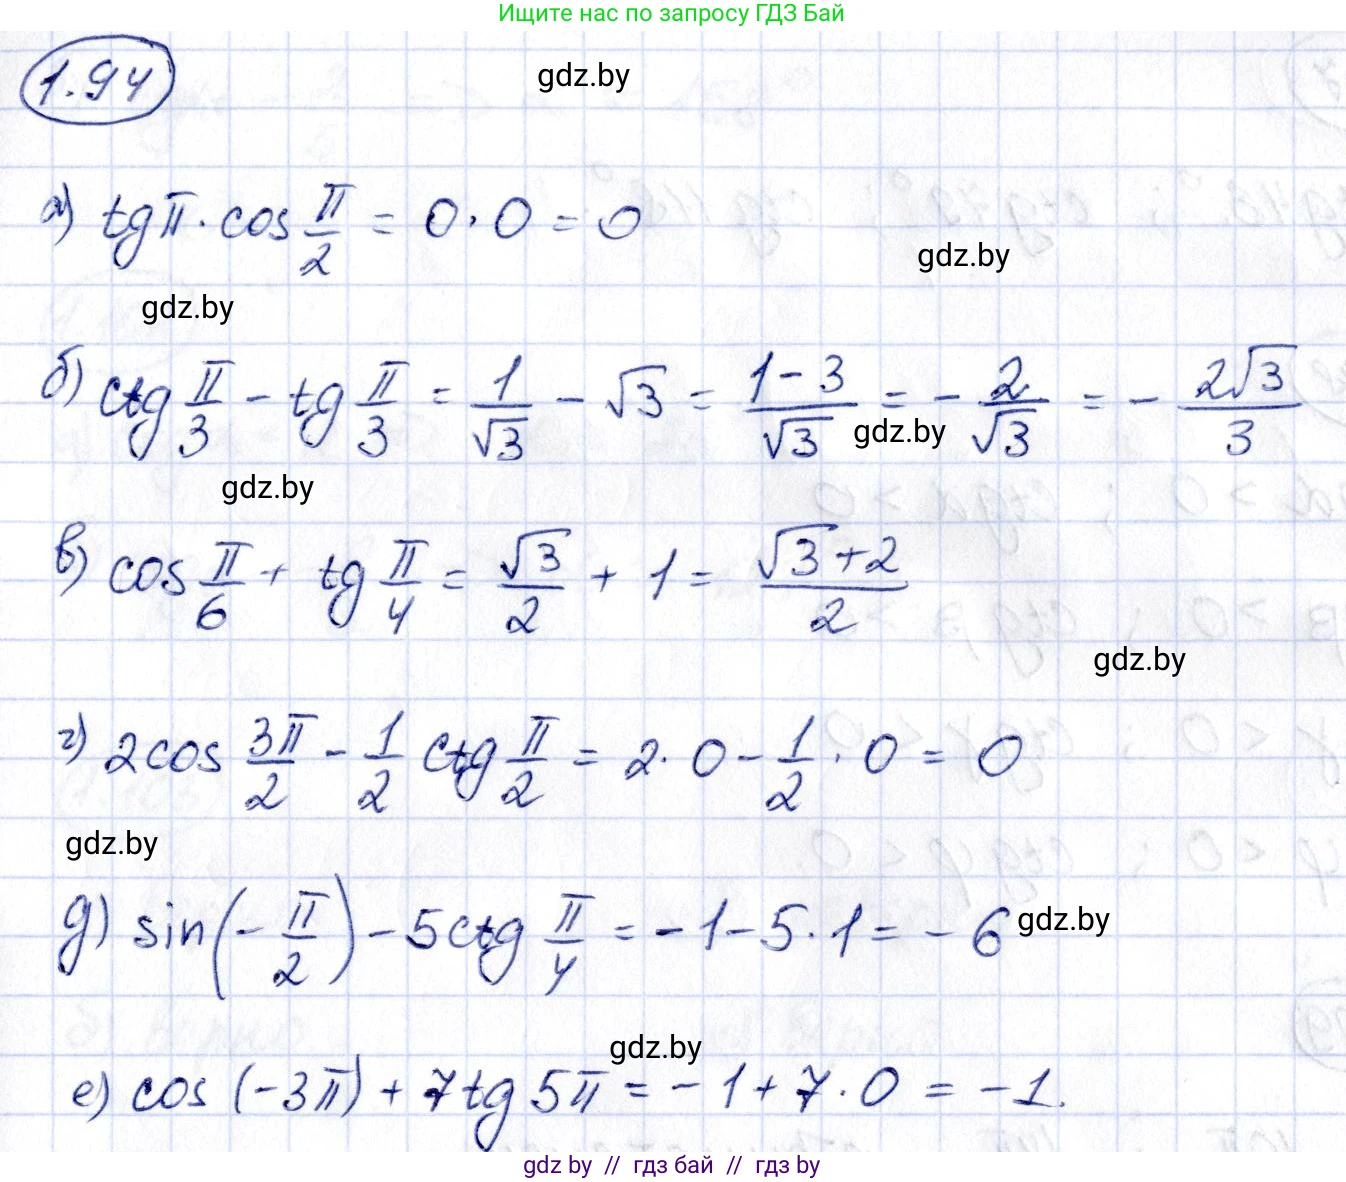 Ищите нас по запросу ГДЗ Бай
1.94
gdz.by
а) tgπ · cos π/2 = 0 · 0 = 0
gdz.by
gdz.by
б) ctg π/3 - tg π/3 = 1/√3 - √3 = (1-3)/√3 = - 2/√3 = - 2√3/3
gdz.by
gdz.by
в) cos π/6 + tg π/4 = √3/2 + 1 = (√3+2)/2
gdz.by
г) 2cos 3π/2 - 1/2 ctg π/2 = 2 · 0 - 1/2 · 0 = 0
gdz.by
д) sin(-π/2) - 5ctg π/4 = -1 - 5 · 1 = -6
gdz.by
gdz.by
е) cos (-3π) + 7tg 5π = -1 + 7 · 0 = -1.
gdz by // гдз бай // гдз by